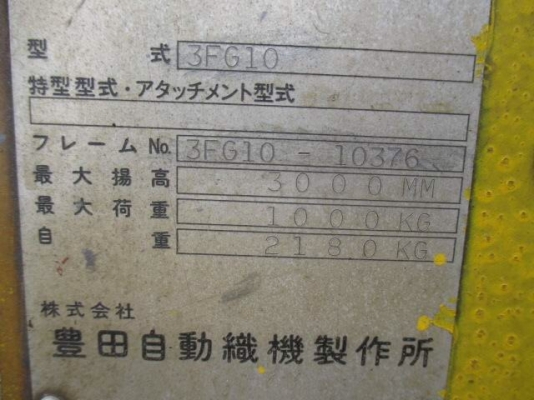 型式 3FG10
特型型式・アタッチメント型式
フレームNo. 3FG10-10376
最大揚高 3000MM
最大荷重 1000KG
自重 2180KG
株式会社
豊田自動織機製作所